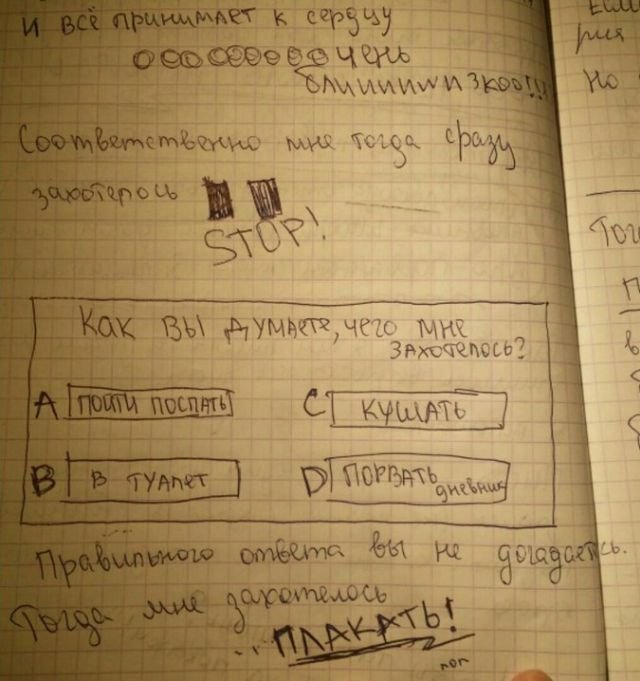 и всё принимает к сердцу
ооооооооочень
близкоо!!!
Соответственно мне тогда сразу
захотелось
STOP!
Как вы думаете, чего мне
захотелось?
A пойти поспать
C кушать
B в туалет
D порвать
дневник
Правильного ответа вы не догадаетесь.
Тогда мне захотелось
...ПЛАКАТЬ!
лол
Но
Тог